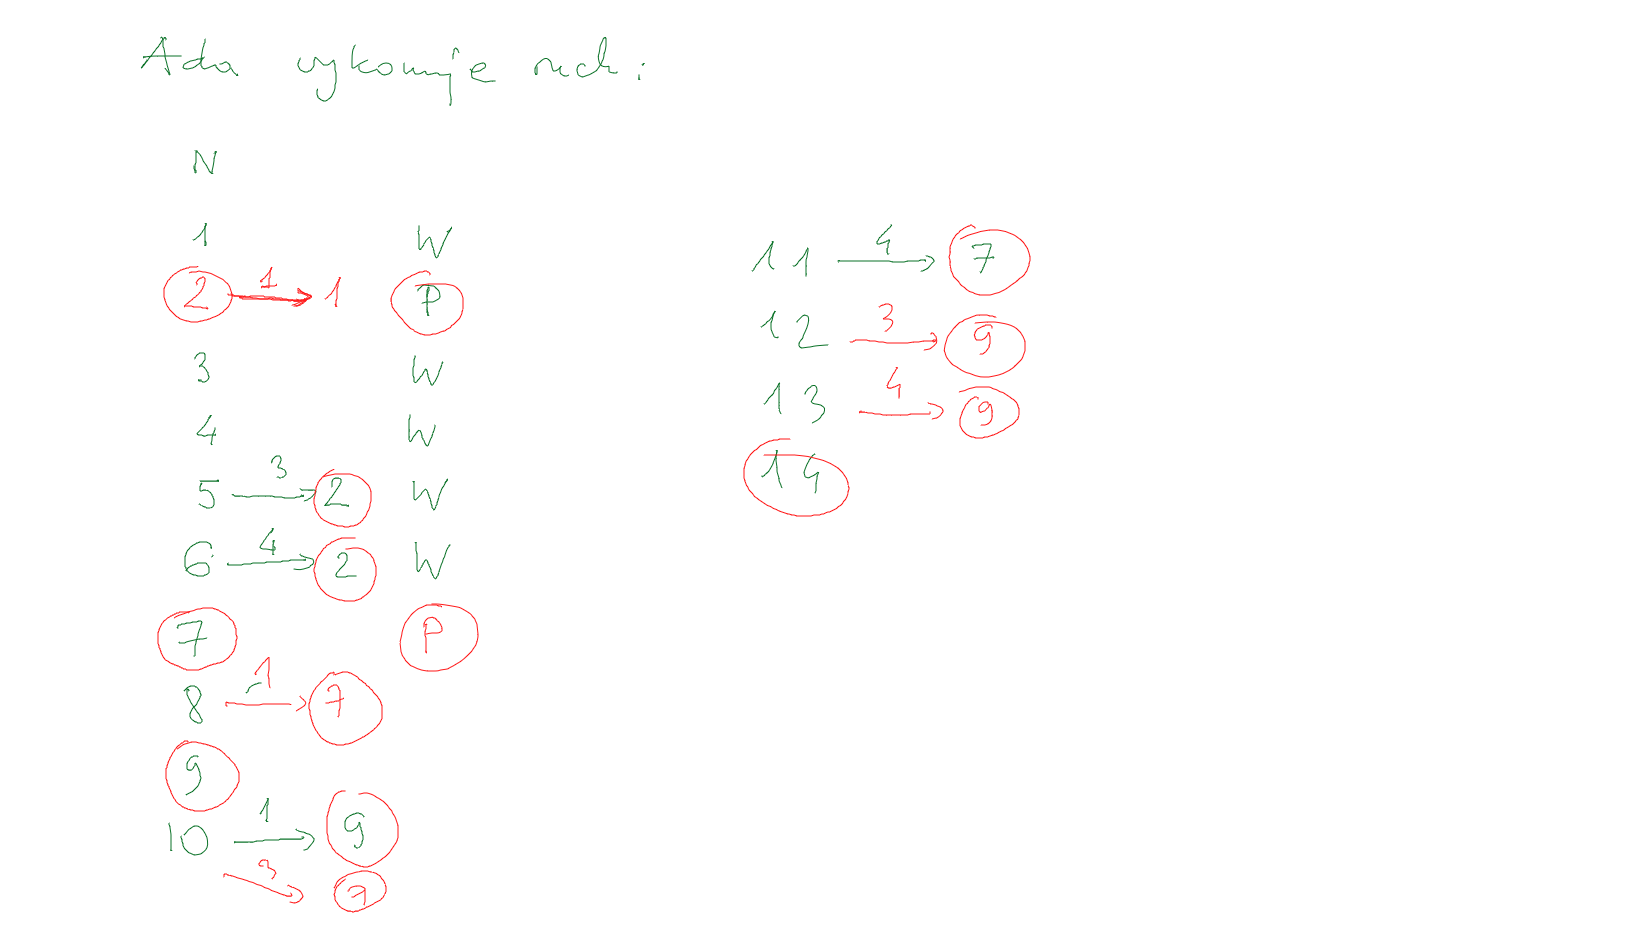 Ada wykonuje ruch:
N
1 W
2 1 1 P
3 W
4 W
5 3 2 W
6 4 2 W
7 P
8 1 7
9
10 1 9
3 7
11 4 7
12 3 9
13 4 9
14